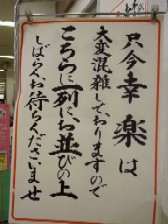 只今幸楽は
大変混雑しておりますので
こちらに一列にお並びの上
しばらくお待ちくださいませ